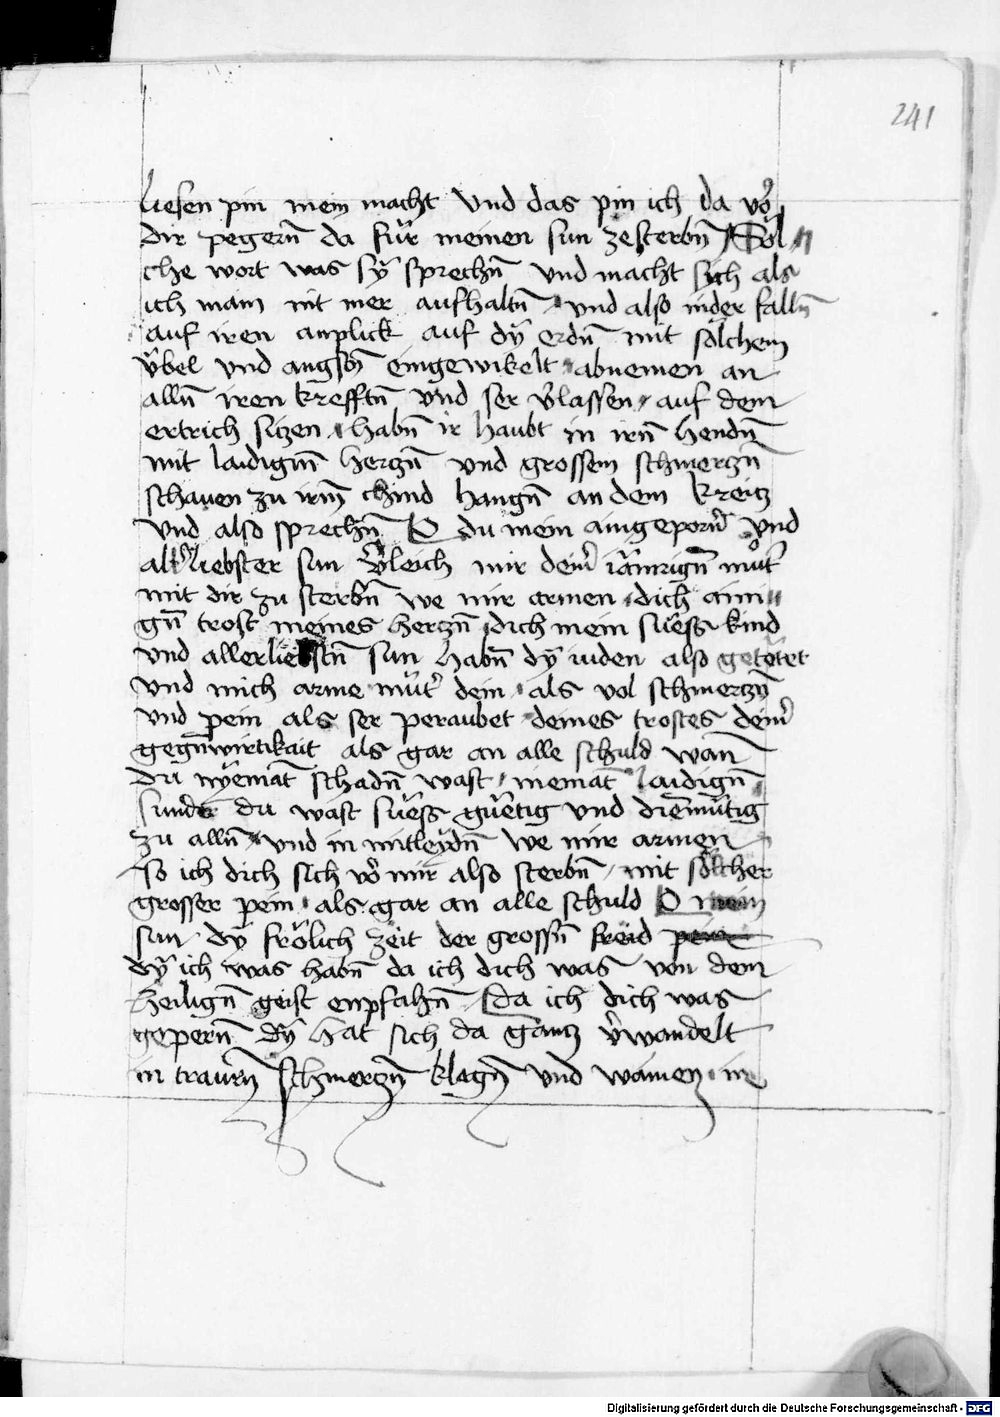 241
liesen pin mein macht Und das pin ich da võ
dir pegern̄ da für meinen sun zesterbn̄ / Söl //
che wort was sÿ sprechn̄ und macht sych als
ich main nit mer aufhaltn̄ und also nider falln̄
auf iren anplick auf dÿ erdn̄ mit sölchem
vͤbel und angstn̄ eingewikelt abnemen an
alln̄ iren krefftn̄ und ser v̄lassen auf dem
ertrich sitzen habn̄ ir haubt in irn̄ hendn̄
mit laidigm̄ hertzn̄ und grossem schmertzn̄
schauen zu irm̄ chind hangn̄ an dem kreitz
und also sprechn̄ O du mein aingeporn̄ und
all'liebster sun v̄leich mir dein' iämrign̄ muͦt'
mit dir zu sterbn̄ we mir armen dich aini //
gn̄ trost meines hertzn̄ dich mein süess kind
und allerliebstn̄ sun habn̄ dÿ iuden also getötet
und mich arme müt' dein als vol schmertzn̄
und pein als ser peraubet deines trostes dein'
gegn̄wirtikait als gar an alle schuld wan̄
du nÿemāt schadn̄ wast niemāt laidign̄
sunder du wast süess güetig und diemütig
zu alln̄ und in mitleydn̄ we mir armen
so ich dich sich vō mir also sterbn̄ mit sölcher
grosser pein als gar an alle schuld O mein
sun dÿ frölich zeit der grossn̄ freid pein
dÿ ich was habn̄ da ich dich was von dem
heilign̄ geist enpfahn̄ da ich dich was
gepern̄ dÿ hat sich da gantz v̄wandelt
in traurn̄ schmertzn̄ klagn̄ und wainen in
Digitalisierung gefördert durch die Deutsche Forschungsgemeinschaft - DFG